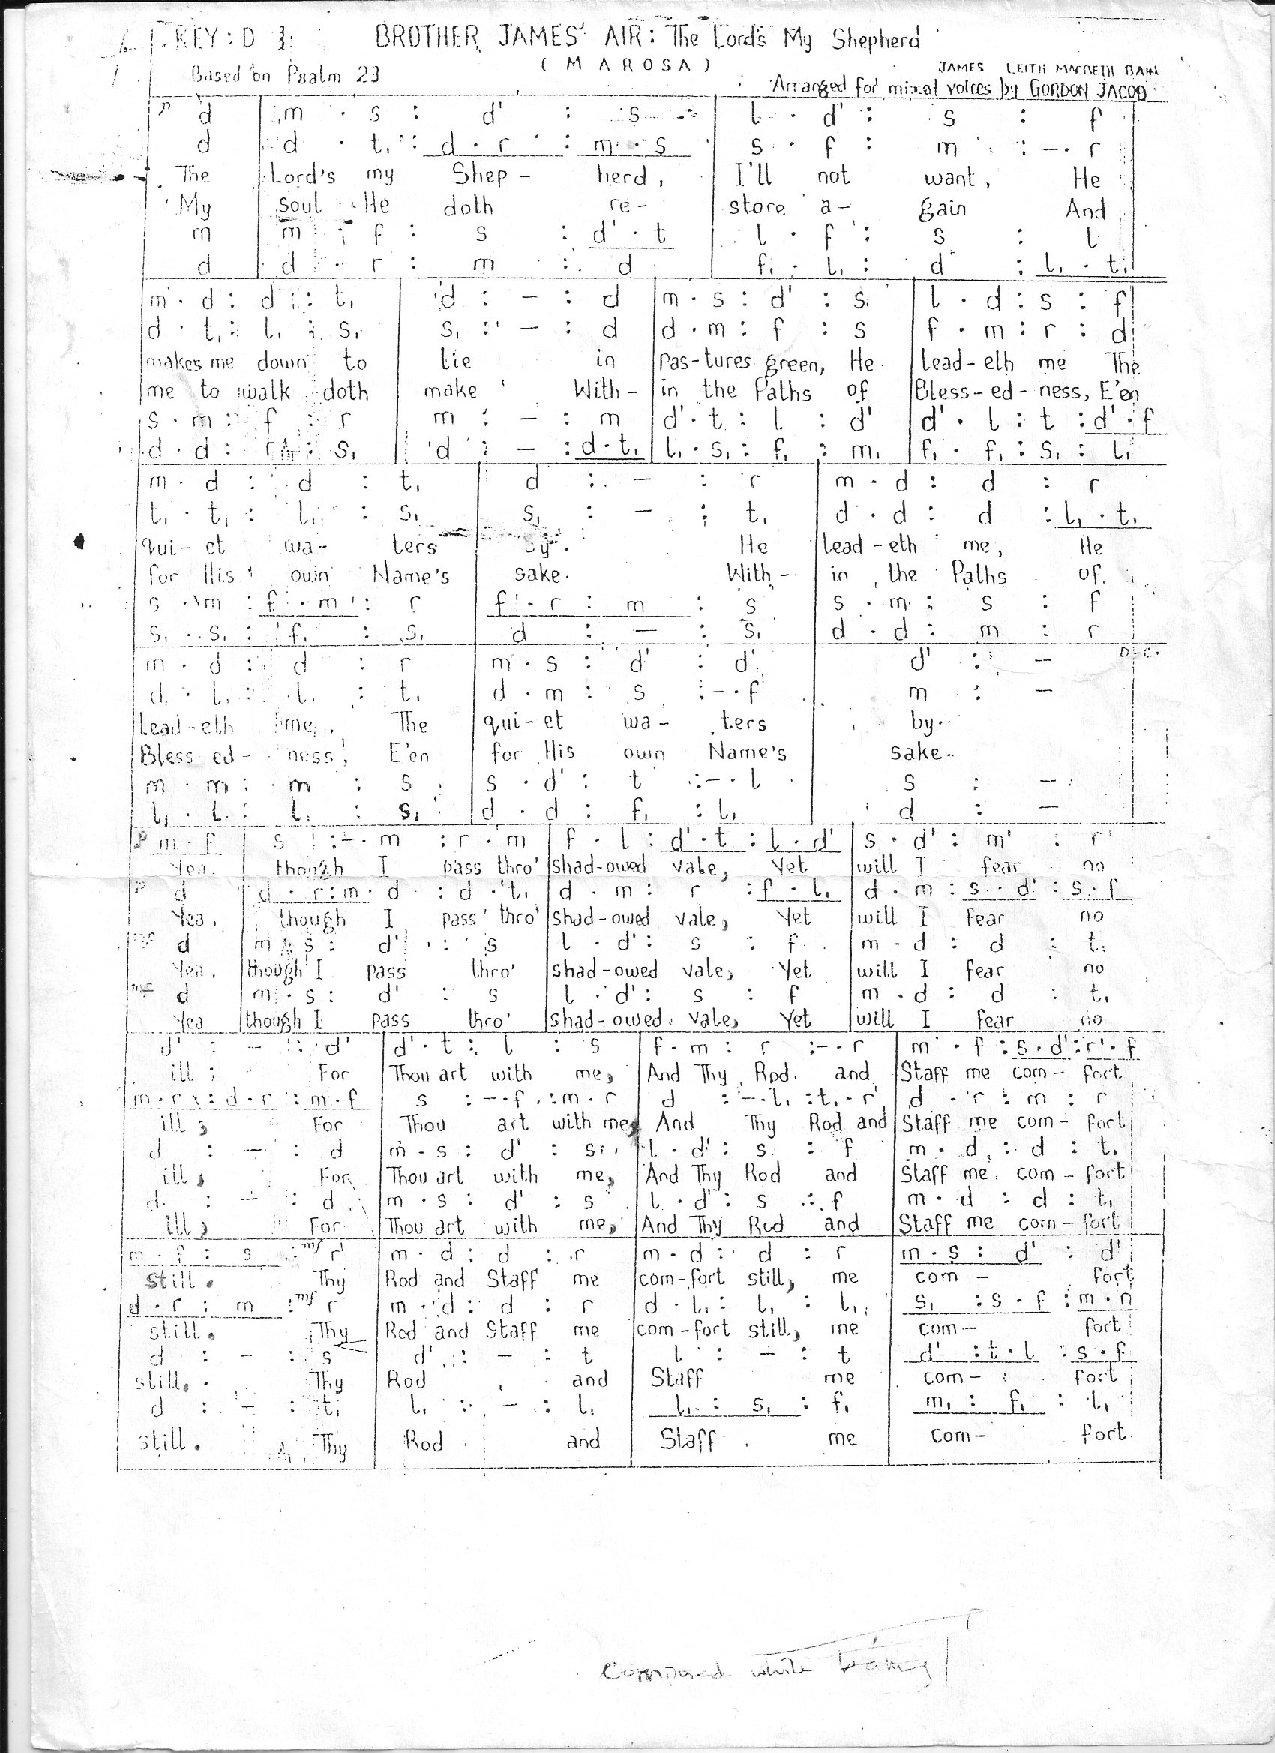 KEY : D
BROTHER JAMES' AIR: The Lord's My Shepherd
(MAROSA)
Based on Psalm 23
JAMES LEITH MACBETH BAIN
Arranged for mixed voices by GORDON JACOB
p d | m . s : d' : s | l . d' : s : f
d | d . t, : d . r : m . s | s . f : m : - . r
The Lord's my Shep- herd, I'll not want, He
My soul He doth re- store a- gain And
m | m . f : s : d' . t | l . f : s : l
d | d . r : m : d | f, . l, : d : l, . t,
m . d : d : t, | d : - : d | m . s : d' : s | l . d : s : f
d . t, : l, : s, | s, : - : d | d . m : f : s | f . m : r : d
makes me down to lie in pas-tures green, He lead-eth me The
me to walk doth make With- in the Paths of Bless-ed-ness, E'en
s . m : f : r | m : - : m | d' . t : l : d' | d' . l : t : d' . f
d . d : : s, | d : - : d . t, | l, . s, : f, : m, | f, . f, : s, : l,
m . d : d : t, | d : - : r | m . d : d : r
t, . t, : l, : s, | s, : - : t, | d . d : d : l, . t,
qui-et wa- ters by. He lead-eth me, He
for His own Name's sake. With- in the Paths of
s . m : f . m : r | f . r : m : s | s . m : s : f
s, . s, : f, : s, | d : - : s, | d . d : m : r
m . d : d : r | m . s : d' : d' | d' : -
d . l, : l, : t, | d . m : s : - . f | m : -
lead-eth me, The qui-et wa- ters by.
Bless ed- ness, E'en for His own Name's sake.
m . m : m : s | s . d' : t : - . l | s : -
l, . l, : l, : s, | d . d : f, : l, | d : -
p m . f | s : - . m : r . m | f . l : d' . t : l . d' | s . d' : m' : r'
Yea, though I pass thro' shad-owed vale, Yet will I fear no
p d | d . r : m . d : d . t, | d . m : r : f . l, | d . m : s . d' : s . f
Yea, though I pass thro' shad-owed vale, Yet will I fear no
mf d | m . s : d' : s | l . d' : s : f | m . d : d : t,
Yea, though I pass thro' shad-owed vale, Yet will I fear no
mf d | m . s : d' : s | l . d' : s : f | m . d : d : t,
Yea though I pass thro' shad-owed vale, Yet will I fear no
d' : - : d' | d' . t : l : s | f . m : r : - . r | m . f : s . d' : r' . f
ill; For Thou art with me, And Thy Rod and Staff me com- fort
m . r : d . r : m . f | s : - . f : m . r | d : - . l, : t, . r | d . r : m : r
ill, For Thou art with me, And Thy Rod and Staff me com- fort
d : - : d | m . s : d' : s | l . d' : s : f | m . d : d : t,
ill, For Thou art with me, And Thy Rod and Staff me com- fort
d : - : d | m . s : d' : s | l . d' : s : f | m . d : d : t,
ill, For Thou art with me, And Thy Rod and Staff me com- fort
m . f : s : mf r' | m . d : d : r | m . d : d : r | m . s : d' : d'
still. Thy Rod and Staff me com-fort still, me com- fort
d . r : m : mf r | m . d : d : r | d . l, : l, : l, | s, : s . f : m .
still. Thy Rod and Staff me com-fort still, me com- fort
d : - : s | d' : - : t | l : - : t | d' : t . l : s . f
still. Thy Rod and Staff me com- fort
d : - : t, | l, : - : l, | l, : s, : f, | m, : f, : l,
still. Thy Rod and Staff me com- fort.